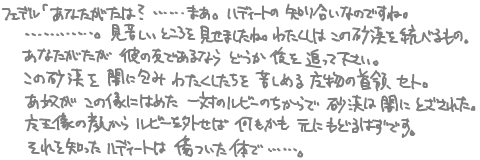 フェデル「あなたがたは？……まあ。ルディートの知り合いなのですね。
…………。見苦しいところを見せましたね。わたくしはこの砂漠を統べるもの。
あなたがたが彼の友であるならどうか後を追って下さい。
この砂漠を闇に包みわたくしたちを苦しめる魔物の首領、セト。
あ奴がこの像にはめた一対のルビーのちからで砂漠は闇にとざされた。
女王像の顔からルビーを外せば何もかも元にもどるはずです。
それを知ったルディートは傷ついた体で……。